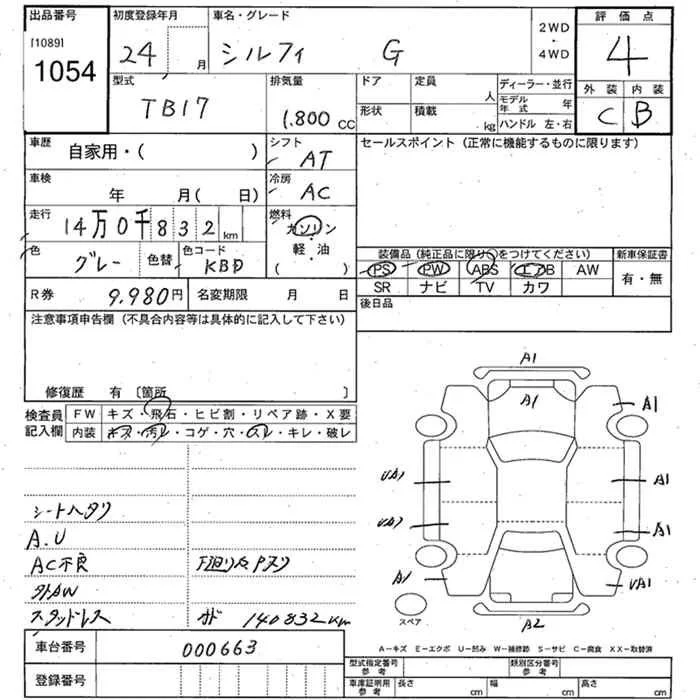 出品番号 初度登録年月 車名・グレード 2WD・4WD 評価点
[1089] 24 月 シルフィ G 4
1054 型式 排気量 ドア 定員 人 ディーラー・並行 外装 内装
TB17 1.800 cc 形状 積載 kg モデル年式 年 C B
ハンドル 左・右
車歴 自家用・( ) シフト AT セールスポイント (正常に機能するものに限ります)
車検 年 月( 日) 冷房 AC
走行 14万0千832 km 燃料 ガソリン・軽油 ( )
色 グレー 色替 色コード KBD 装備品 (純正品に限り○をつけてください) 新車保証書
PS PW ABS エアB AW 有・無
SR ナビ TV カワ
R券 9,980円 名変期限 月 日 後日品
注意事項申告欄 (不具合内容等は具体的に記入して下さい)
修復歴 有 〔箇所 〕
検査員記入欄 FW キズ・飛石・ヒビ割・リペア跡・X要
内装 キズ・汚レ・コゲ・穴・スレ・キレ・破レ
A1
A1
A1
UA1
A1
A1
A1
UA1
A2
スペア
シートヘタリ
A.U
AC不良
外AW
スタッドレス 140832km
A-キズ E-エクボ U-凹み W-補修跡 S-サビ C-腐食 XX-取替済
車台番号 000663
登録番号
型式指定番号 参考 類別区分番号 参考
車庫証明用 参考 長さ cm 幅 cm 高さ cm